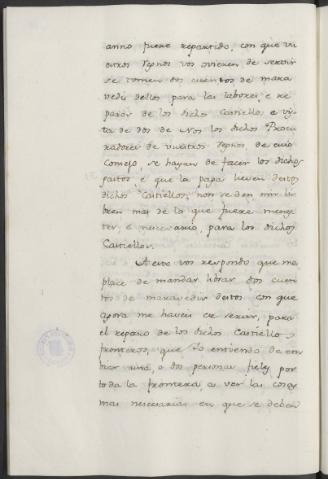 anno fuere repartido, con que vu
estros Regnos vos ovieren de servir
se tomen dos cuentos de mara
vedis dellos para las labores, e re
paros de los dichos Castiellos e vis
ta de dos de Nos los dichos Procu
radores de vuestros Regnos, de cuio
Consejo se hayan de facer los dichos
gastos e que la paga lieven destos
dichos Castiellos, non se den nin li
bren mas de lo que fuere menes
ter, e necesario, para los dichos
Castiellos.
A esto vos respondo que me
place de mandar librar dos cuen
tos de maravedis destos con que
agora me haveis de servir, para
el reparo de los dichos Castiellos
fronteros, que Yo entiendo de en
biar una, o dos personas fieles por
toda la frontera, a ver las cosas
mas necesarias en que se deben